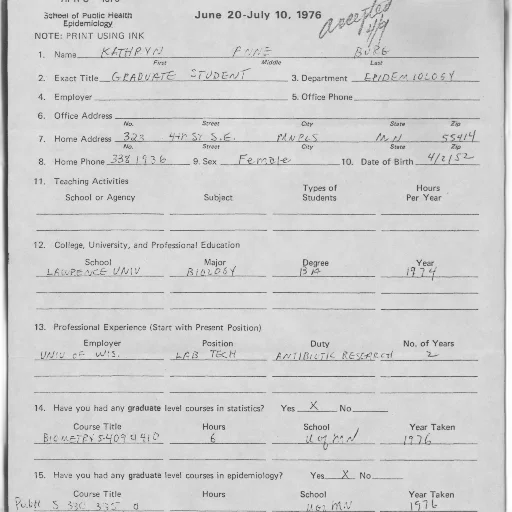 School of Public Health
Epidemiology
June 20-July 10, 1976
accepted
4/9
NOTE: PRINT USING INK
1. Name KATHRYN ANNE BURG
First Middle Last
2. Exact Title GRADUATE STUDENT 3. Department EPIDEMIOLOGY
4. Employer 5. Office Phone
6. Office Address
No. Street City State Zip
7. Home Address 323 4TH ST S.E. MNPLS MN 55414
No. Street City State Zip
8. Home Phone 338 1936 9. Sex Female 10. Date of Birth 4/2/52
11. Teaching Activities
School or Agency Subject Types of Students Hours Per Year
12. College, University, and Professional Education
School Major Degree Year
LAWRENCE UNIV BIOLOGY BA 1974
13. Professional Experience (Start with Present Position)
Employer Position Duty No. of Years
UNIV OF WIS. LAB TECH ANTIBIOTIC RESEARCH 2
14. Have you had any graduate level courses in statistics? Yes X No
Course Title Hours School Year Taken
BIOMETRY 5-409 410 6 U of MN 1976
15. Have you had any graduate level courses in epidemiology? Yes X No
Course Title Hours School Year Taken
PubH 5 330 335 U of MN 1976